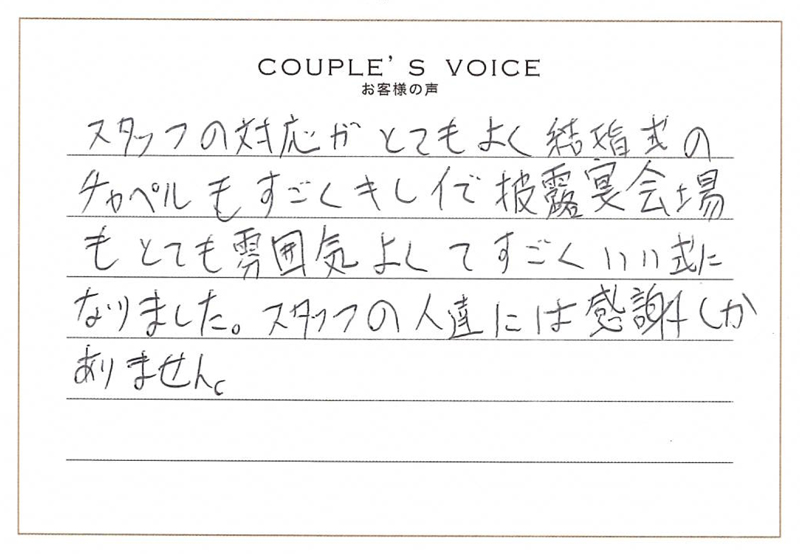 COUPLE'S VOICE
お客様の声
スタッフの対応がとてもよく結婚式の
チャペルもすごくキレイで披露宴会場
もとても雰囲気よくてすごくいい式に
なりました。スタッフの人達には感謝しか
ありません。